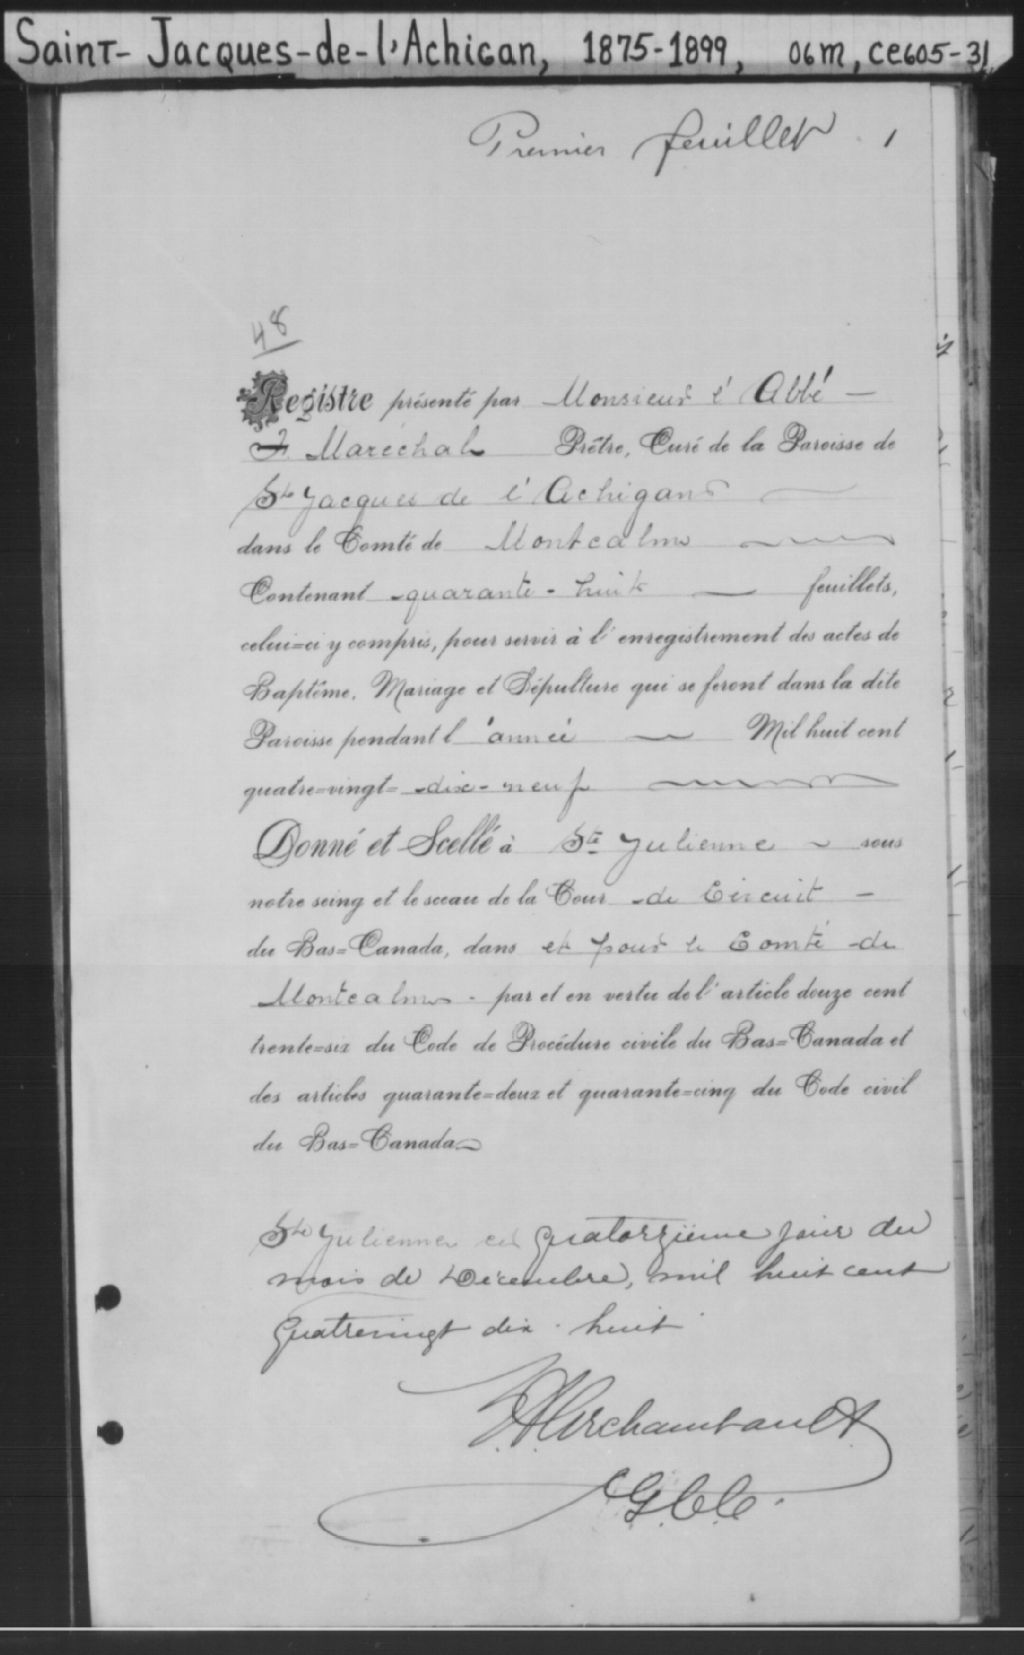 Saint-Jacques-de-l'Achigan, 1875-1899, 06m, CE605-31
Premier feuillet 1
48
Registre présenté par Monsieur l'Abbé
Maréchal Prêtre, Curé de la Paroisse de
St Jacques de l'Achigan
dans le Comté de Montcalm
Contenant quarante-huit feuillets,
celui=ci y compris, pour servir à l'enregistrement des actes de
Baptême, Mariage et Sépulture qui se feront dans la dite
Paroisse pendant l'année Mil huit cent
quatre=vingt=dix-neuf
Donné et Scellé à Ste Julienne sous
notre seing et le sceau de la Cour de Circuit
du Bas=Canada, dans et pour le Comté de
Montcalm par et en vertu de l'article douze cent
trente=six du Code de Procédure civile du Bas=Canada et
des articles quarante=deux et quarante=cinq du Code civil
du Bas=Canada
Ste Julienne ce quatorzième jour du
mois de Décembre, mil huit cent
Quatrevingt dix huit
Archambault